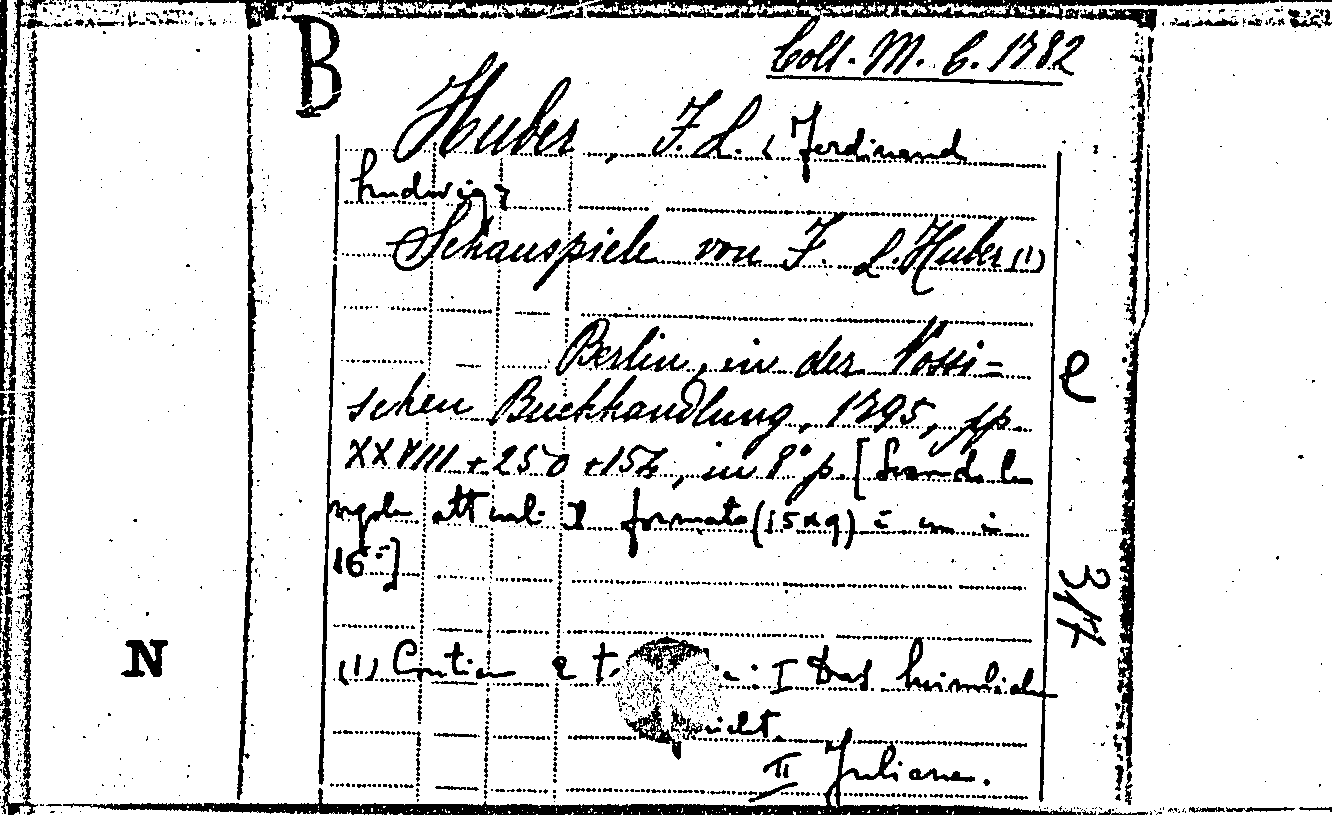 B
Coll. M. C. 1782
Huber, F. L. (Ferdinand
Ludwig)
Schauspiele von F. L. Huber (1)
Berlin, in der Vossi=
schen Buchhandlung, 1795, pp.
XXVIII + 250 + 152, in 8° p. [Secondo le
regole attuali il formato (15x9) è un in
16°]
(1) Contiene 2 I Das heimliche
II Juliane.
e
317
N